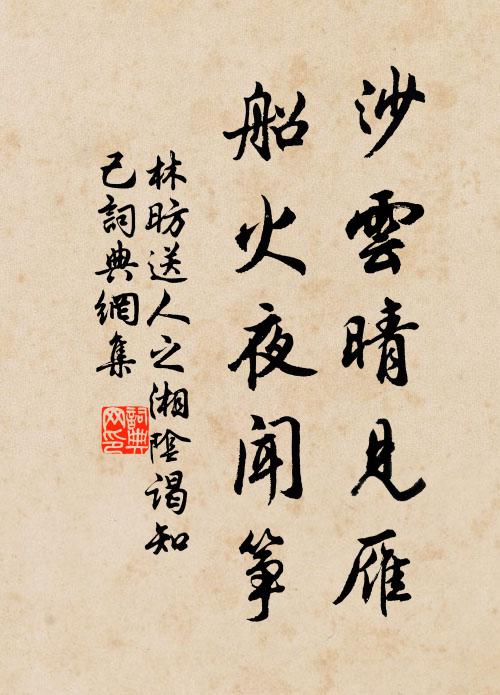 沙雲晴見雁
船火夜聞筝
林昉送人之湘陰謁知
己詞典網集
詞典网印